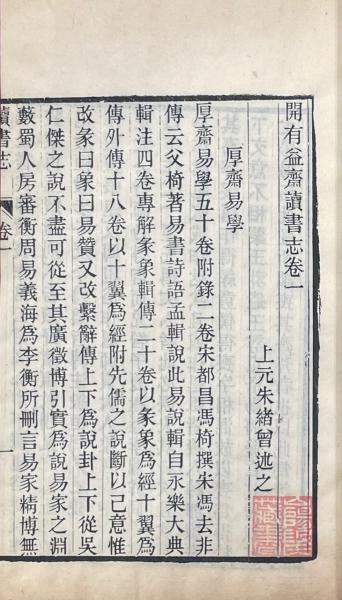 開有益齋讀書志卷一
上元朱緒曾述之
厚齋易學
厚齋易學五十卷附錄二卷宋都昌馮椅撰宋馮去非
傳云父椅著易書詩語孟輯說此易說輯自永樂大典
輯注四卷專解彖象輯傳二十卷以彖象爲經十翼爲
傳外傳十八卷以十翼爲經附先儒之說斷以己意惟
改彖曰象曰易贊又改繫辭傳上下爲說卦上下從吳
仁傑之說不盡可從至其廣徵博引實爲說易家之淵
藪蜀人房審衡周易義海爲李衡所刪言易家精博無
讀書志
卷一
一